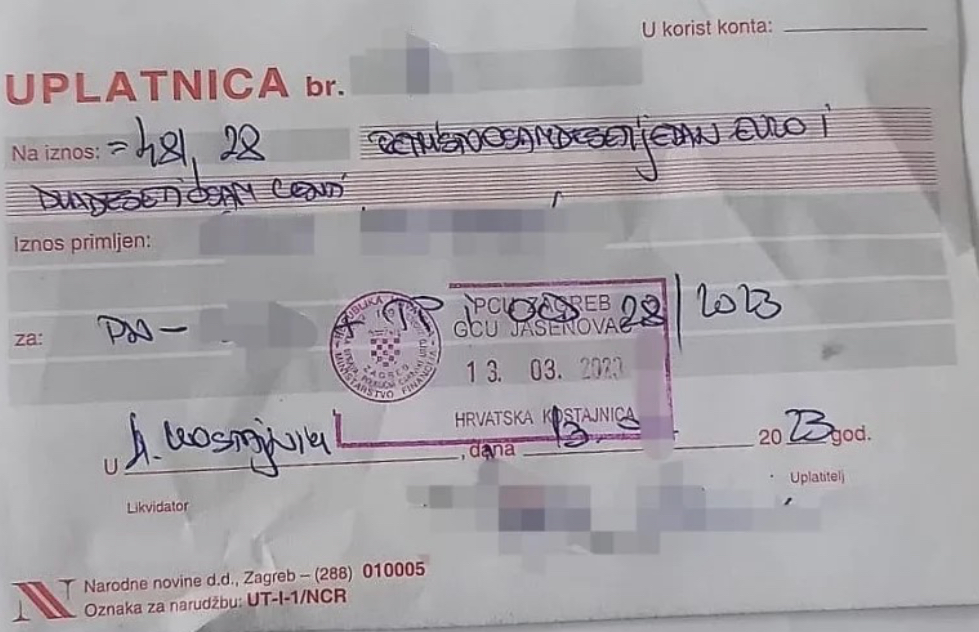 U korist konta:
UPLATNICA br.
Na iznos: =481,28 ČETIRISTOOSAMDESETJEDAN EURO I
DVADESETOSAM CENTI
Iznos primljen:
za: PN- 28/2023
REPUBLIKA HRVATSKA
MINISTARSTVO FINANCIJA
ZAGREB
PCU ZAGREB
GCU JASENOVA
13. 03. 2023
HRVATSKA KOSTAJNICA
U H. Kostajnici, dana 13. 3. 2023 god.
Likvidator
Uplatitelj
Narodne novine d.d., Zagreb – (288) 010005
Oznaka za narudžbu: UT-I-1/NCR